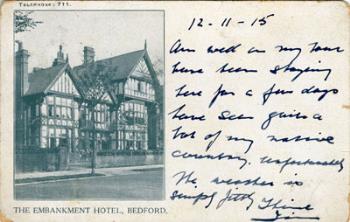 TELEPHONE: 711.
12-11-15
Am well on my tour
have been staying
here for a few days
have seen quite a
lot of my native
country. Unfortunately
the weather is
simply
THE EMBANKMENT HOTEL, BEDFORD.